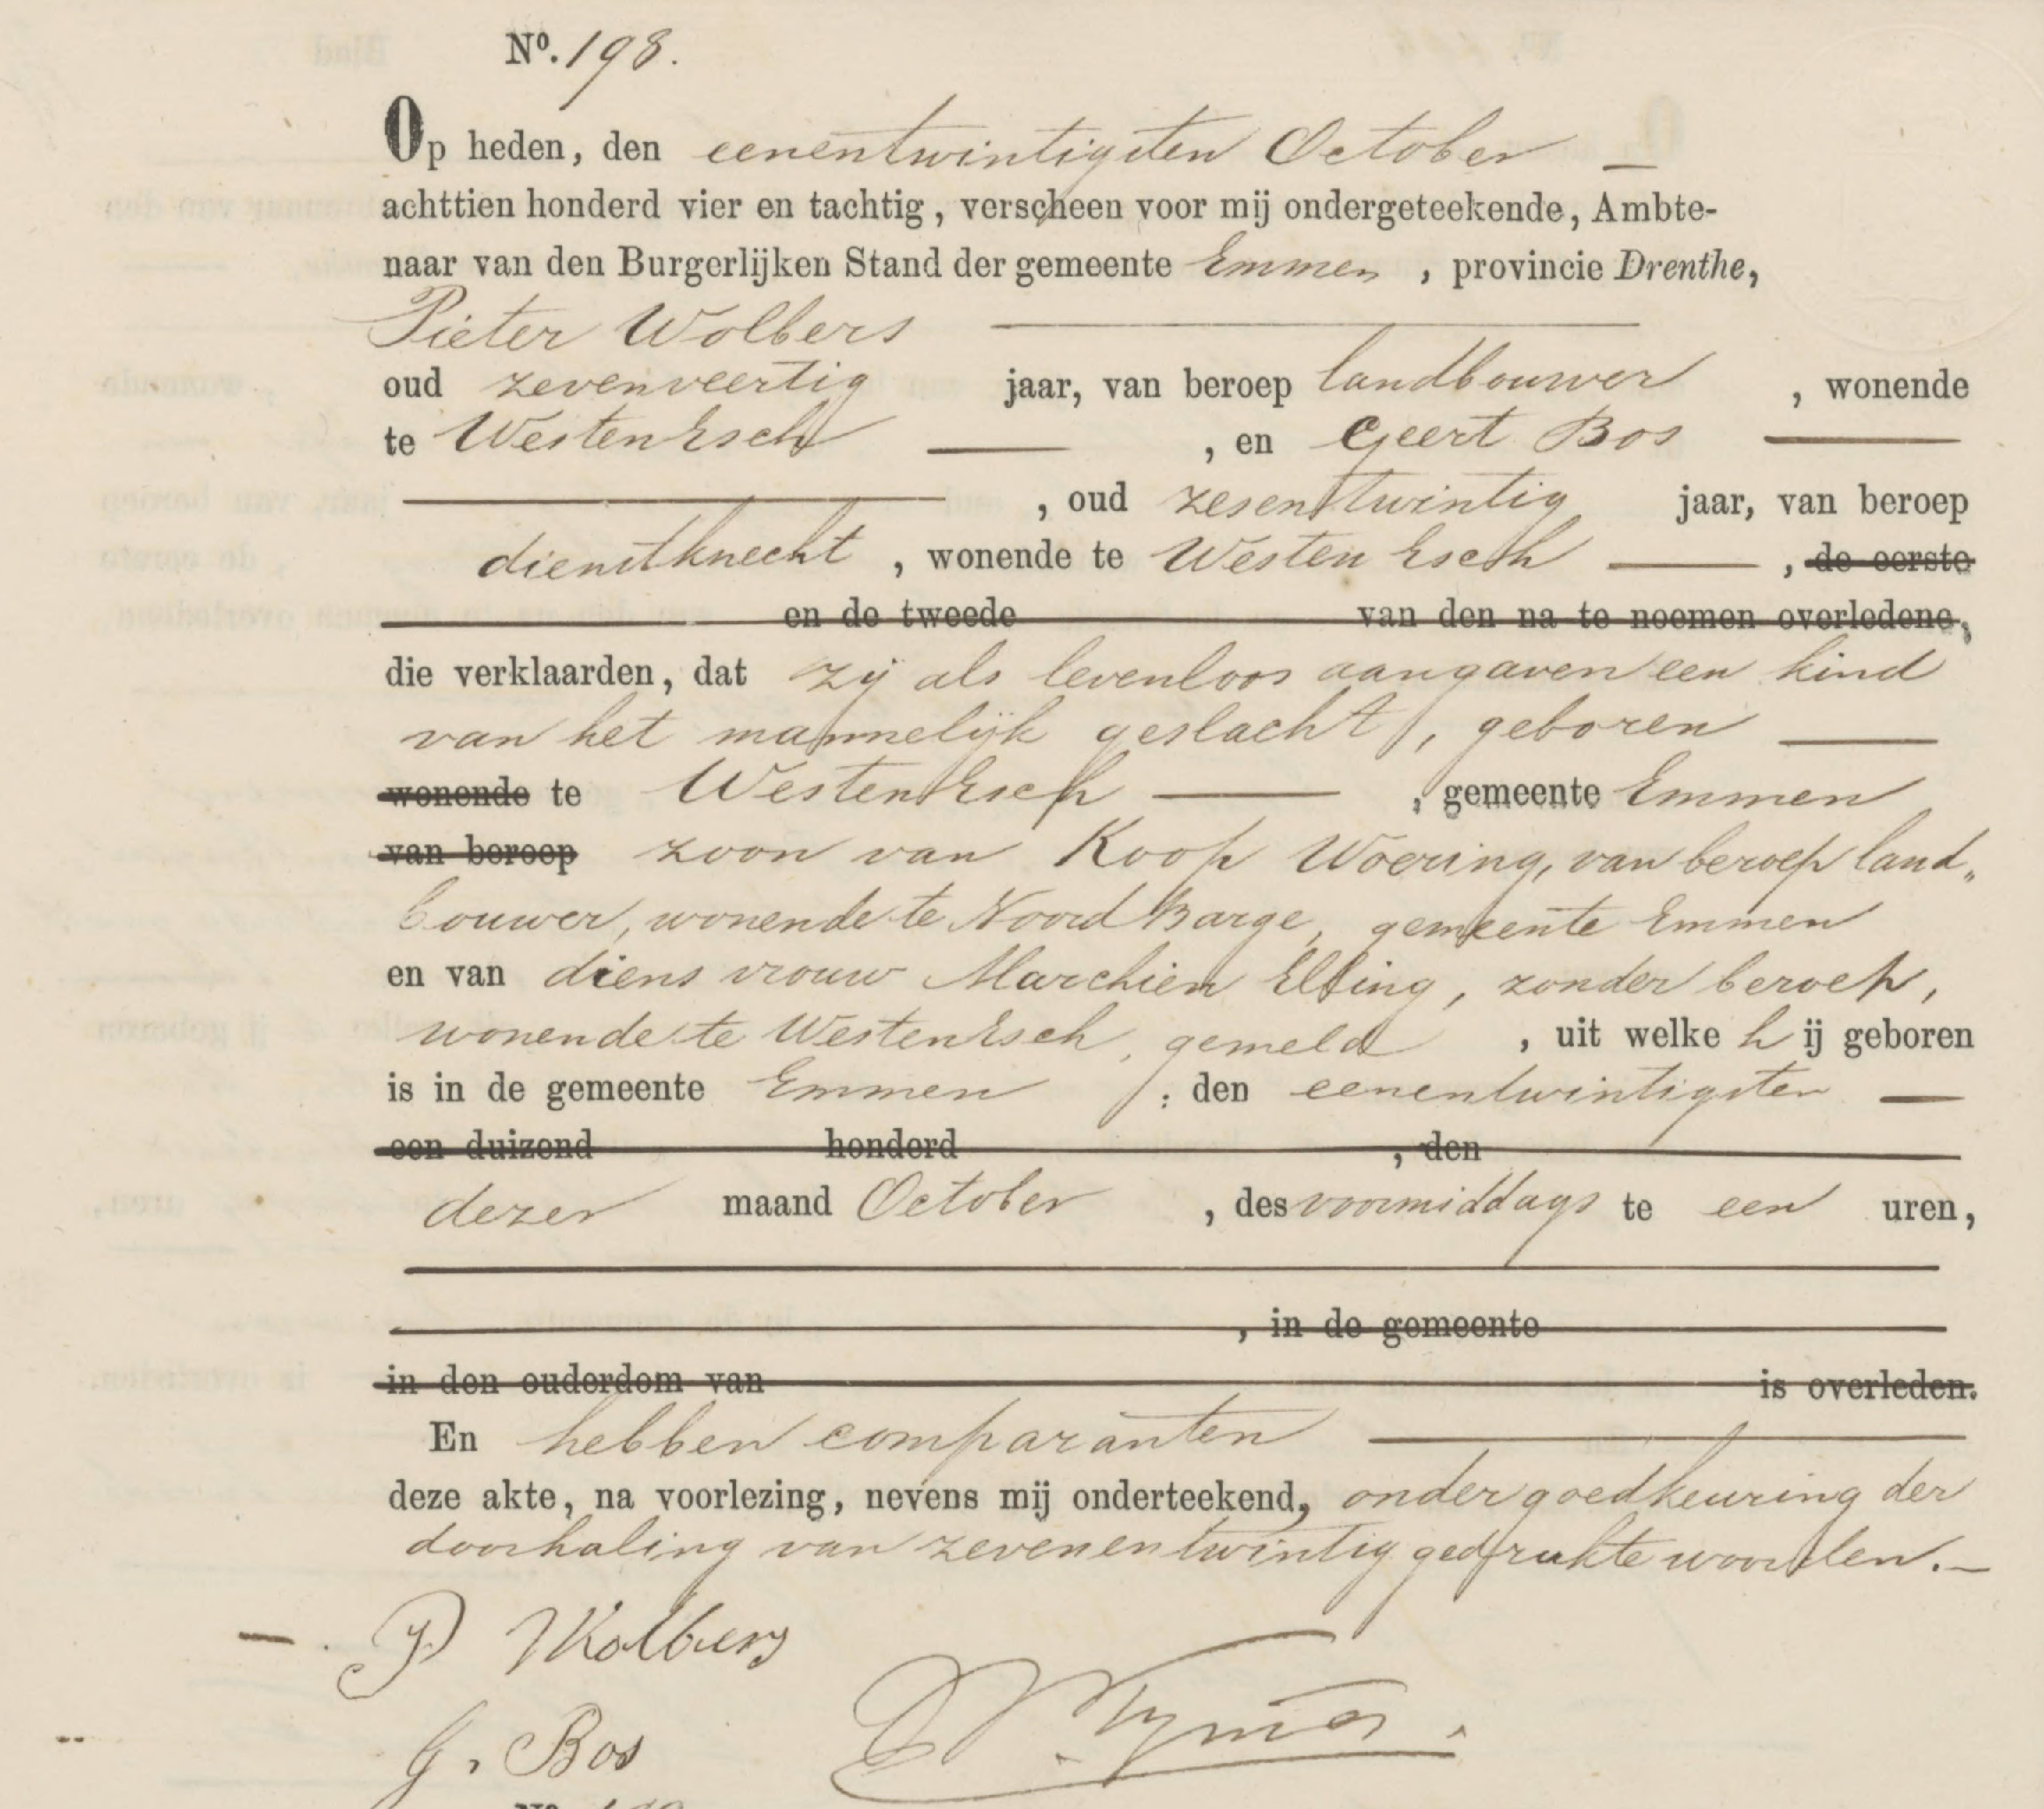 No. 198.
Op heden, den eenentwintigsten October —
achttien honderd vier en tachtig, verscheen voor mij ondergeteekende, Ambte-
naar van den Burgerlijken Stand der gemeente Emmen, provincie Drenthe,
Pieter Wolbers
oud zevenveertig jaar, van beroep landbouwer, wonende
te WestenEsch —, en Geert Bos —
—, oud zesentwintig jaar, van beroep
dienstknecht, wonende te WestenEsch —, de eerste
en de tweede van den na te noemen overledene,
die verklaarden, dat zij als levenloos aangaven een kind
van het mannelijk geslacht, geboren —
wonende te WestenEsch —, gemeente Emmen
van beroep zoon van Koop Woering, van beroep land„
bouwer, wonende te NoordBarge, gemeente Emmen
en van diens vrouw Marchien Elting, zonder beroep,
wonende te WestenEsch, gemeld, uit welke hij geboren
is in de gemeente Emmen : den eenentwintigsten —
een duizend honderd , den
dezer maand October, des voormiddags te een uren,
, in de gemeente
in den ouderdom van is overleden.
En hebben comparanten —
deze akte, na voorlezing, nevens mij onderteekend, onder goedkeuring der
doorhaling van zevenentwintig gedrukte woorden. —
P Wolbers
G. Bos